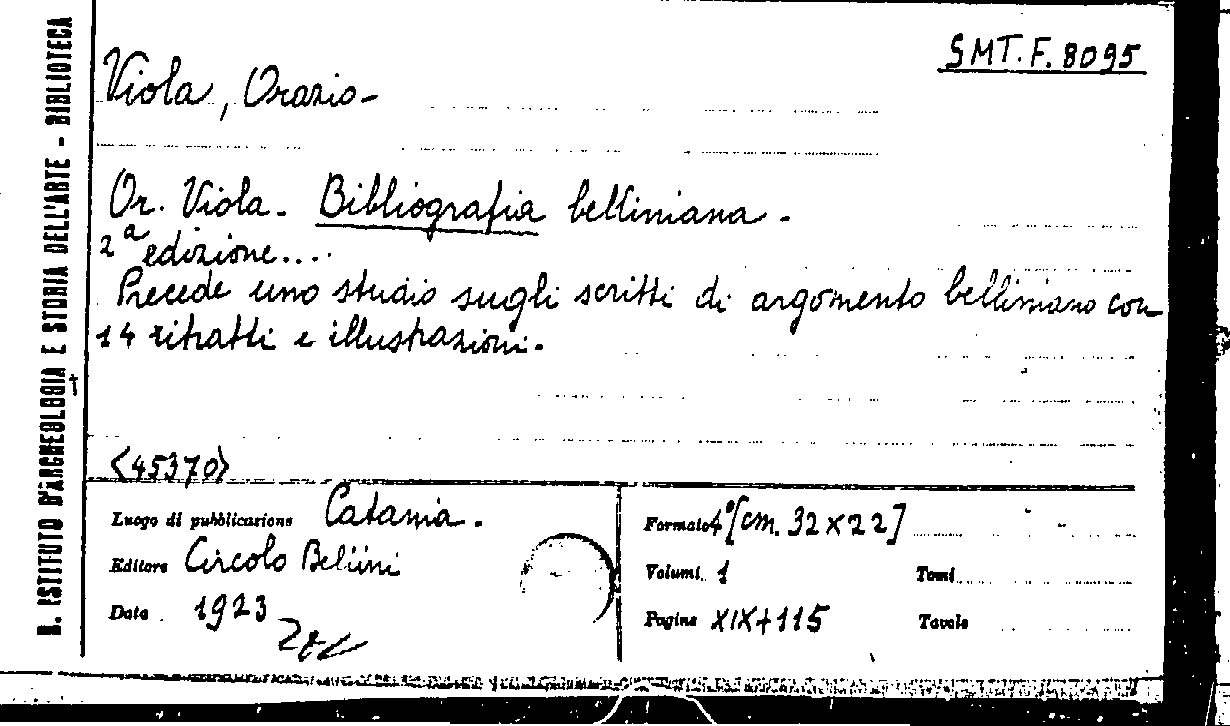 R. ISTITUTO D'ARCHEOLOGIA E STORIA DELL'ARTE - BIBLIOTECA
SMT. F. 8095
Viola, Orazio -
Or. Viola - Bibliografia belliniana -
2ª edizione....
Precede uno studio sugli scritti di argomento belliniano con
14 ritratti e illustrazioni.
<45370>
Luogo di pubblicazione Catania.
Editore Circolo Bellini
Data 1923
Formato 4° [cm. 32x22]
Volumi 1 Tomi
Pagine XIX+115 Tavole